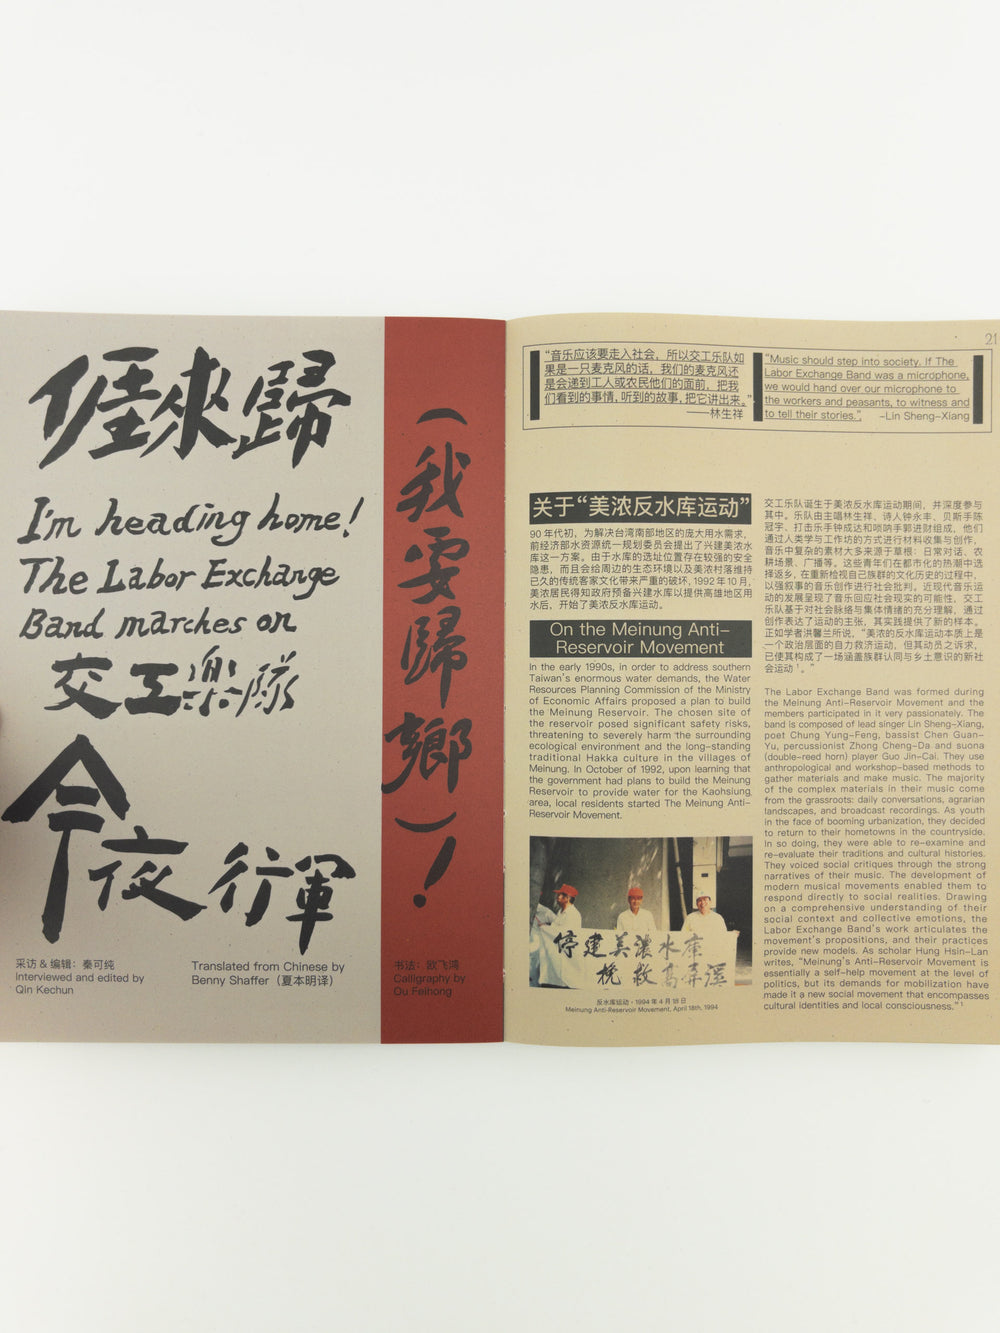 𠊎來歸
I'm heading home!
The Labor Exchange
Band marches on
交工樂隊
今夜行軍
采访 & 编辑：秦可纯
Interviewed and edited by
Qin Kechun
Translated from Chinese by
Benny Shaffer（夏本明译）
（我要歸鄉）！
书法：欧飞鸿
Calligraphy by
Ou Feihong
21
“音乐应该要走入社会，所以交工乐队如
果是一只麦克风的话，我们的麦克风还
是会递到工人或农民他们的面前，把我
们看到的事情，听到的故事，把它讲出来。”
——林生祥
“Music should step into society. If The
Labor Exchange Band was a microphone,
we would hand over our microphone to
the workers and peasants, to witness and
to tell their stories.”
-Lin Sheng-Xiang
关于“美浓反水库运动”
90 年代初，为解决台湾南部地区的庞大用水需求，
前经济部水资源统一规划委员会提出了兴建美浓水
库这一方案。由于水库的选址位置存在较强的安全
隐患，而且会给周边的生态环境以及美浓村落维持
已久的传统客家文化带来严重的破坏，1992 年 10 月，
美浓居民得知政府预备兴建水库以提供高雄地区用
水后，开始了美浓反水库运动。
On the Meinung Anti-
Reservoir Movement
In the early 1990s, in order to address southern
Taiwan's enormous water demands, the Water
Resources Planning Commission of the Ministry
of Economic Affairs proposed a plan to build
the Meinung Reservoir. The chosen site of
the reservoir posed significant safety risks,
threatening to severely harm the surrounding
ecological environment and the long-standing
traditional Hakka culture in the villages of
Meinung. In October of 1992, upon learning that
the government had plans to build the Meinung
Reservoir to provide water for the Kaohsiung
area, local residents started The Meinung Anti-
Reservoir Movement.
停建美濃水庫
挽救高屏溪
反水库运动，1994 年 4 月 18 日
Meinung Anti-Reservoir Movement, April 18th, 1994
交工乐队诞生于美浓反水库运动期间，并深度参与
其中。乐队由主唱林生祥、诗人钟永丰、贝斯手陈
冠宇、打击乐手钟成达和唢呐手郭进财组成，他们
通过人类学与工作坊的方式进行材料收集与创作，
音乐中复杂的素材大多来源于草根：日常对话、农
耕场景、广播等。这些青年们在都市化的热潮中选
择返乡，在重新检视自己族群的文化历史的过程中，
以强叙事的音乐创作进行社会批判。近现代音乐运
动的发展呈现了音乐回应社会现实的可能性，交工
乐队基于对社会脉络与集体情绪的充分理解，通过
创作表达了运动的主张，其实践提供了新的样本。
正如学者洪馨兰所说，“美浓的反水库运动本质上是
一个政治层面的自力救济运动，但其动员之诉求，
已使其构成了一场涵盖族群认同与乡土意识的新社
会运动 ¹。”
The Labor Exchange Band was formed during
the Meinung Anti-Reservoir Movement and the
members participated in it very passionately. The
band is composed of lead singer Lin Sheng-Xiang,
poet Chung Yung-Feng, bassist Chen Guan-
Yu, percussionist Zhong Cheng-Da and suona
(double-reed horn) player Guo Jin-Cai. They use
anthropological and workshop-based methods to
gather materials and make music. The majority
of the complex materials in their music come
from the grassroots: daily conversations, agrarian
landscapes, and broadcast recordings. As youth
in the face of booming urbanization, they decided
to return to their hometowns in the countryside.
In so doing, they were able to re-examine and
re-evaluate their traditions and cultural histories.
They voiced social critiques through the strong
narratives of their music. The development of
modern musical movements enabled them to
respond directly to social realities. Drawing
on a comprehensive understanding of their
social context and collective emotions, the
Labor Exchange Band's work articulates the
movement's propositions, and their practices
provide new models. As scholar Hung Hsin-Lan
writes, “Meinung's Anti-Reservoir Movement is
essentially a self-help movement at the level of
politics, but its demands for mobilization have
made it a new social movement that encompasses
cultural identities and local consciousness.”¹